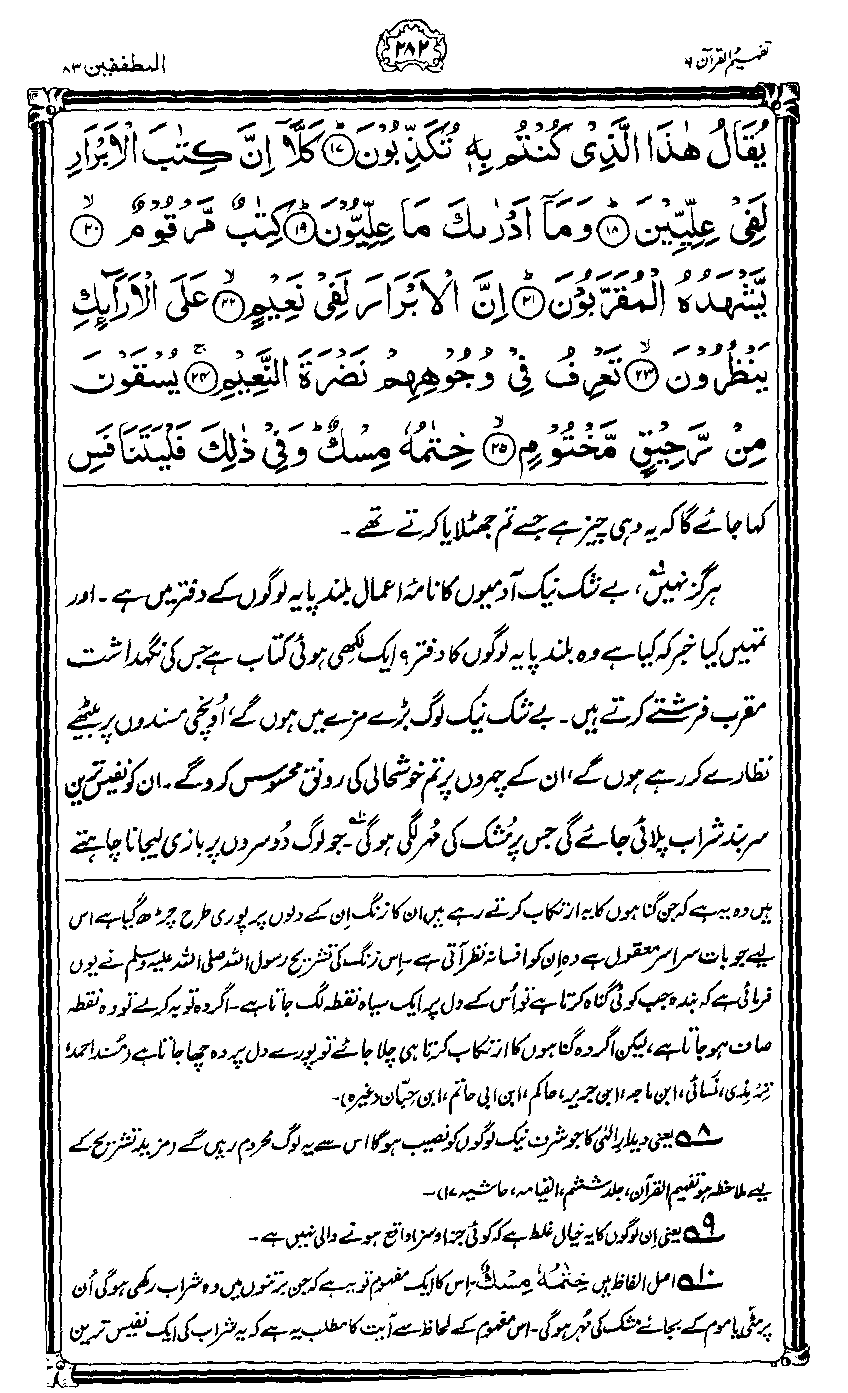 تفہیم القرآن ۶
۲۸۲
المطففین ۸۳
يُقَالُ هٰذَا الَّذِىْ كُنْتُمْ بِهٖ تُكَذِّبُوْنَ ﴿۱۷﴾ كَلَّاۤ اِنَّ كِتٰبَ الْاَبْرَارِ
لَفِىْ عِلِّيِّيْنَ ﴿۱۸﴾ وَمَاۤ اَدْرٰىكَ مَا عِلِّيُّوْنَ ﴿۱۹﴾ كِتٰبٌ مَّرْقُوْمٌ ﴿۲۰﴾
يَّشْهَدُهُ الْمُقَرَّبُوْنَ ﴿۲۱﴾ اِنَّ الْاَبْرَارَ لَفِىْ نَعِيْمٍ ﴿۲۲﴾ عَلَى الْاَرَآىِٕكِ
يَنْظُرُوْنَ ﴿۲۳﴾ تَعْرِفُ فِىْ وُجُوْهِهِمْ نَضْرَةَ النَّعِيْمِ ﴿۲۴﴾ يُسْقَوْنَ
مِنْ رَّحِيْقٍ مَّخْتُوْمٍ ﴿۲۵﴾ خِتٰمُهٗ مِسْكٌ ؕ وَفِىْ ذٰلِكَ فَلْيَتَنَافَسِ
کہا جائے گا کہ یہ وہی چیز ہے جسے تم جھٹلایا کرتے تھے۔
ہرگز نہیں۹، بے شک نیک آدمیوں کا نامۂ اعمال بلند پایہ لوگوں کے دفتر میں ہے۔ اور
تمہیں کیا خبر کہ کیا ہے وہ بلند پایہ لوگوں کا دفتر؟ ایک لکھی ہوئی کتاب ہے جس کی نگہداشت
مقرب فرشتے کرتے ہیں۔ بے شک نیک لوگ بڑے مزے میں ہوں گے، اُونچی مسندوں پر بیٹھے
نظارے کر رہے ہوں گے، ان کے چہروں پر تم خوشحالی کی رونق محسوس کرو گے۔ ان کو نفیس ترین
سربند شراب پلائی جائے گی جس پر مُشک کی مُہر لگی ہوگی۱۰۔ جو لوگ دُوسروں پر بازی لیجانا چاہتے
ہیں وہ یہ ہے کہ جن گناہوں کا یہ ارتکاب کرتے رہے ہیں ان کا زنگ اِن کے دلوں پر پوری طرح چڑھ گیا ہے اس
لیے جو بات سراسر معقول ہے وہ اِن کو افسانہ نظر آتی ہے۔ اِس زنگ کی تشریح رسول اللہ صلی اللہ علیہ وسلم نے یوں
فرمائی ہے کہ بندہ جب کوئی گناہ کرتا ہے تو اُس کے دل پر ایک سیاہ نقطہ لگ جاتا ہے۔ اگر وہ توبہ کر لے تو وہ نقطہ
صاف ہو جاتا ہے، لیکن اگر وہ گناہوں کا ارتکاب کرتا ہی چلا جائے تو پورے دل پر وہ چھا جاتا ہے (مُسند احمد،
ترمذی، نسائی، ابن ماجہ، ابن جریر، حاکم، ابن ابی حاتم، ابن حِبّان وغیرہ)۔
۸ یعنی دیدارِ الٰہی کا جو شرف نیک لوگوں کو نصیب ہوگا اس سے یہ لوگ محروم رہیں گے (مزید تشریح کے
لیے ملاحظہ ہو تفہیم القرآن، جلد ششم، القیامہ، حاشیہ ۱۷)۔
۹ یعنی اِن لوگوں کا یہ خیال غلط ہے کہ کوئی جزا و سزا واقع ہونے والی نہیں ہے۔
۱۰ اصل الفاظ ہیں خِتٰمُهٗ مِسْكٌ۔ اِس کا ایک مفہوم تو یہ ہے کہ جن برتنوں میں وہ شراب رکھی ہوگی اُن
پر مٹی یا موم کے بجائے مشک کی مُہر ہوگی۔ اس مفہوم کے لحاظ سے آیت کا مطلب یہ ہے کہ یہ شراب کی ایک نفیس ترین